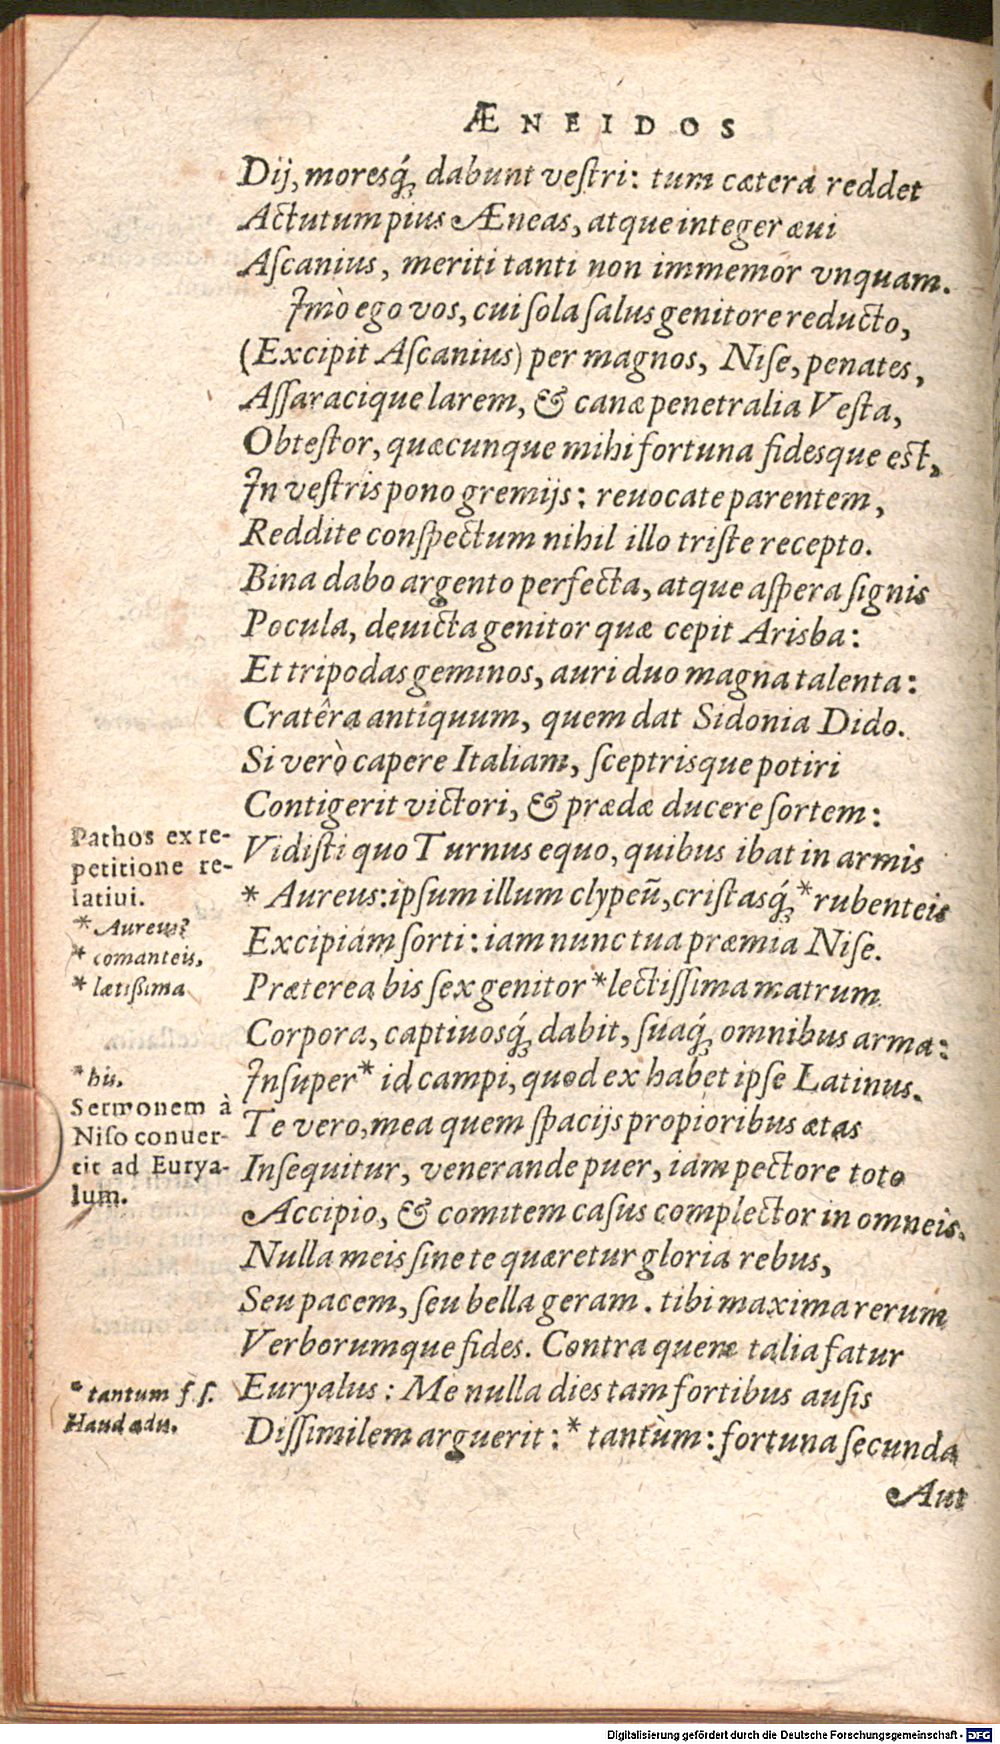 ÆNEIDOS
Dij, moresq́ꝫ dabunt veſtri: tum cætera reddet
Actutum pius Æneas, atque integer æui
Aſcanius, meriti tanti non immemor vnquam.
Imò ego vos, cui ſola ſalus genitore reducto,
(Excipit Aſcanius) per magnos, Niſe, penates,
Aſſaracique larem, & canæ penetralia Veſta,
Obteſtor, quæcunque mihi fortuna fidesque est,
In veſtris pono gremijs: reuocate parentem,
Reddite conſpectum nihil illo triſte recepto.
Bina dabo argento perfecta, atque aſpera ſignis
Pocula, deuicta genitor quæ cepit Arisba:
Et tripodas geminos, auri duo magna talenta:
Cratêra antiquum, quem dat Sidonia Dido.
Si verò capere Italiam, ſceptrisque potiri
Contigerit victori, & prædæ ducere ſortem:
Pathos ex re-
petitione re-
latiui.
Vidiſti quo Turnus equo, quibus ibat in armis
* Aureus: ipſum illum clypeũ, criſtasq́ꝫ *rubenteis
* Aureus?
Excipiam ſorti: iam nunc tua præmia Niſe.
* comanteis.
Præterea bis ſex genitor *lectiſſima matrum
* lætißima
Corpora, captiuosq́ꝫ dabit, ſuaq́ꝫ omnibus arma:
Inſuper* id campi, quod ex habet ipſe Latinus.
* his.
Te vero, mea quem ſpacijs propioribus ætas
Sermonem à
Niſo conuer-
tit ad Eurya-
lum.
Inſequitur, venerande puer, iam pectore toto
Accipio, & comitem caſus complector in omneis.
Nulla meis ſine te quæretur gloria rebus,
Seu pacem, ſeu bella geram. tibi maxima rerum
Verborumque fides. Contra quem talia fatur
Euryalus: Me nulla dies tam fortibus auſis
* tantum f. ſ.
Haud adu.
Diſſimilem arguerit: * tantùm: fortuna ſecunda
Aut
Digitalisierung gefördert durch die Deutsche Forschungsgemeinschaft - DFG